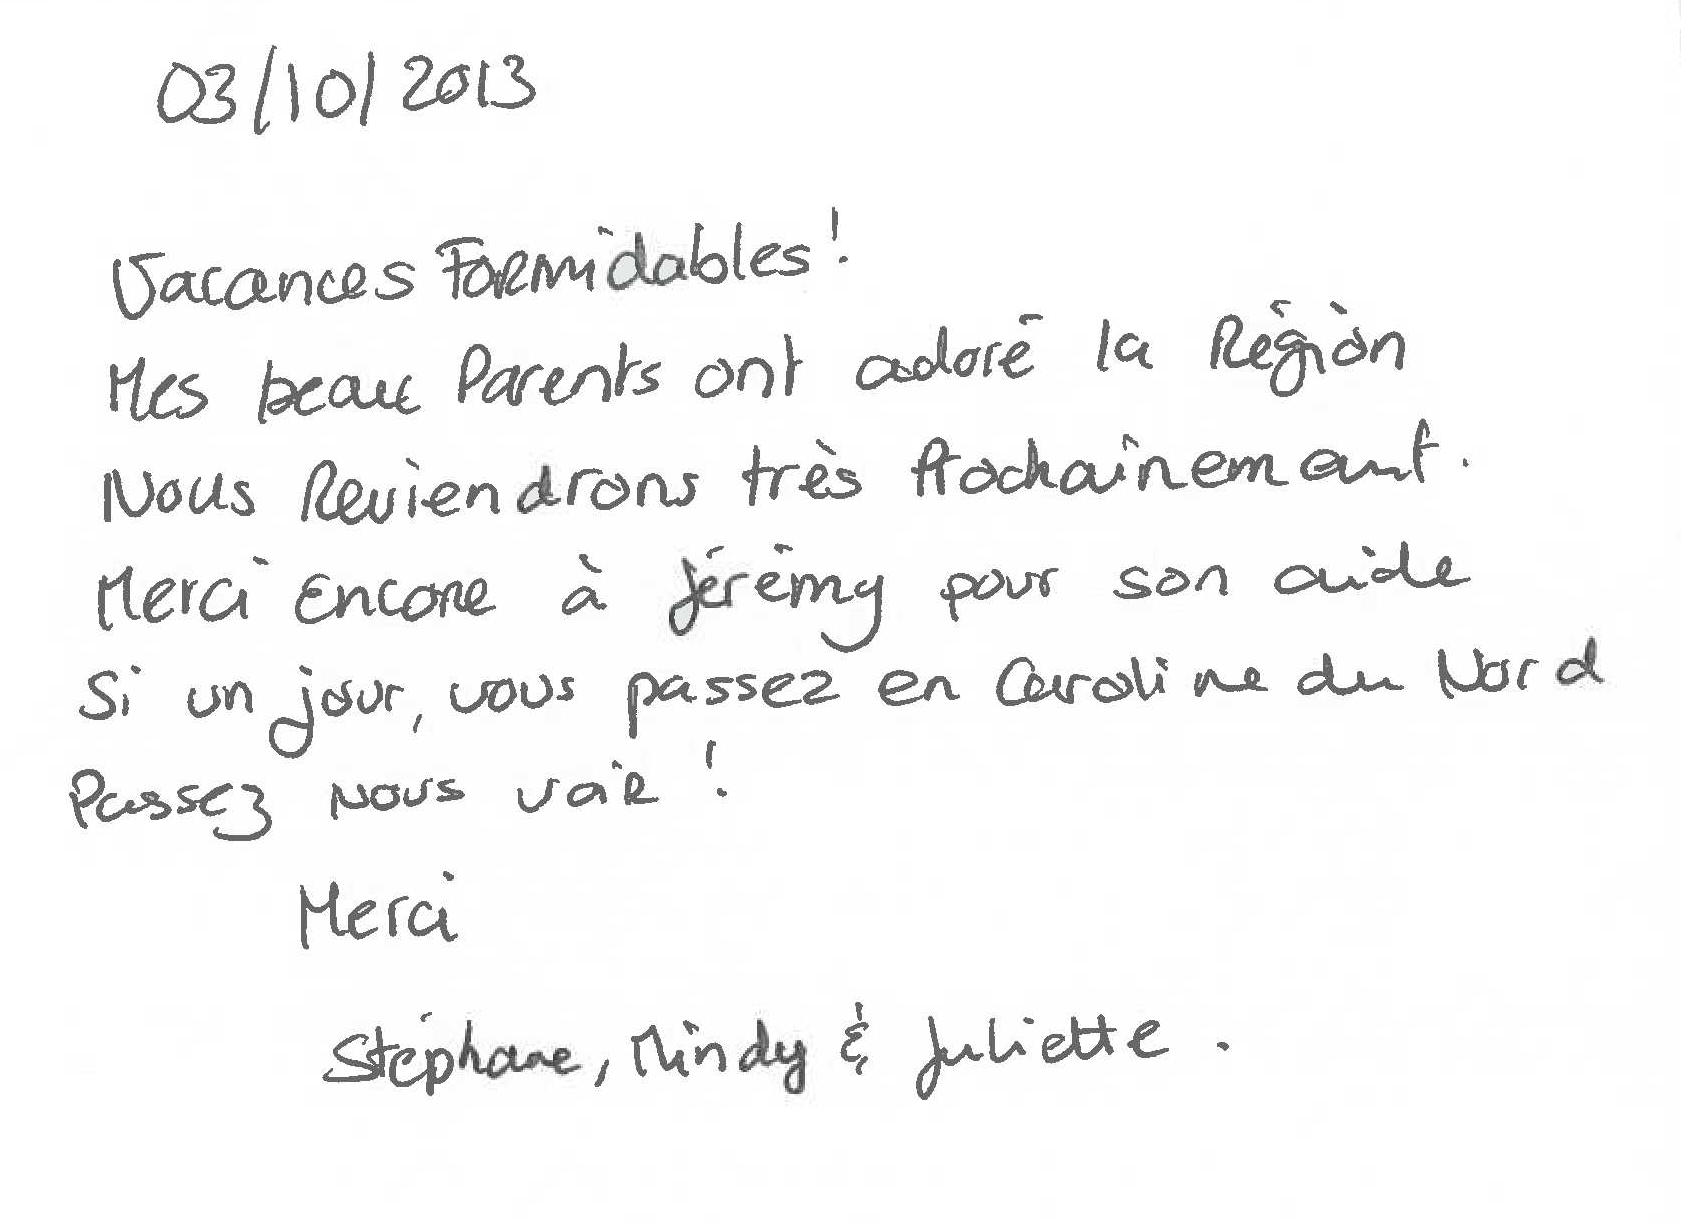 03/10/2013
Vacances Formidables !
Mes beaux Parents ont adoré la Région
Nous Reviendrons très Prochainement.
Merci Encore à Jérémy pour son aide
Si un jour, vous passez en Caroline du Nord
Passez nous voir !
Merci
Stéphane, Mindy & Juliette.